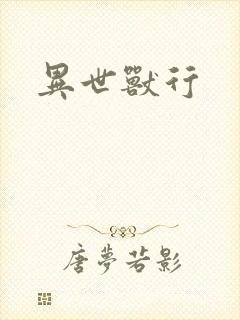 異世獸行
唐夢若影